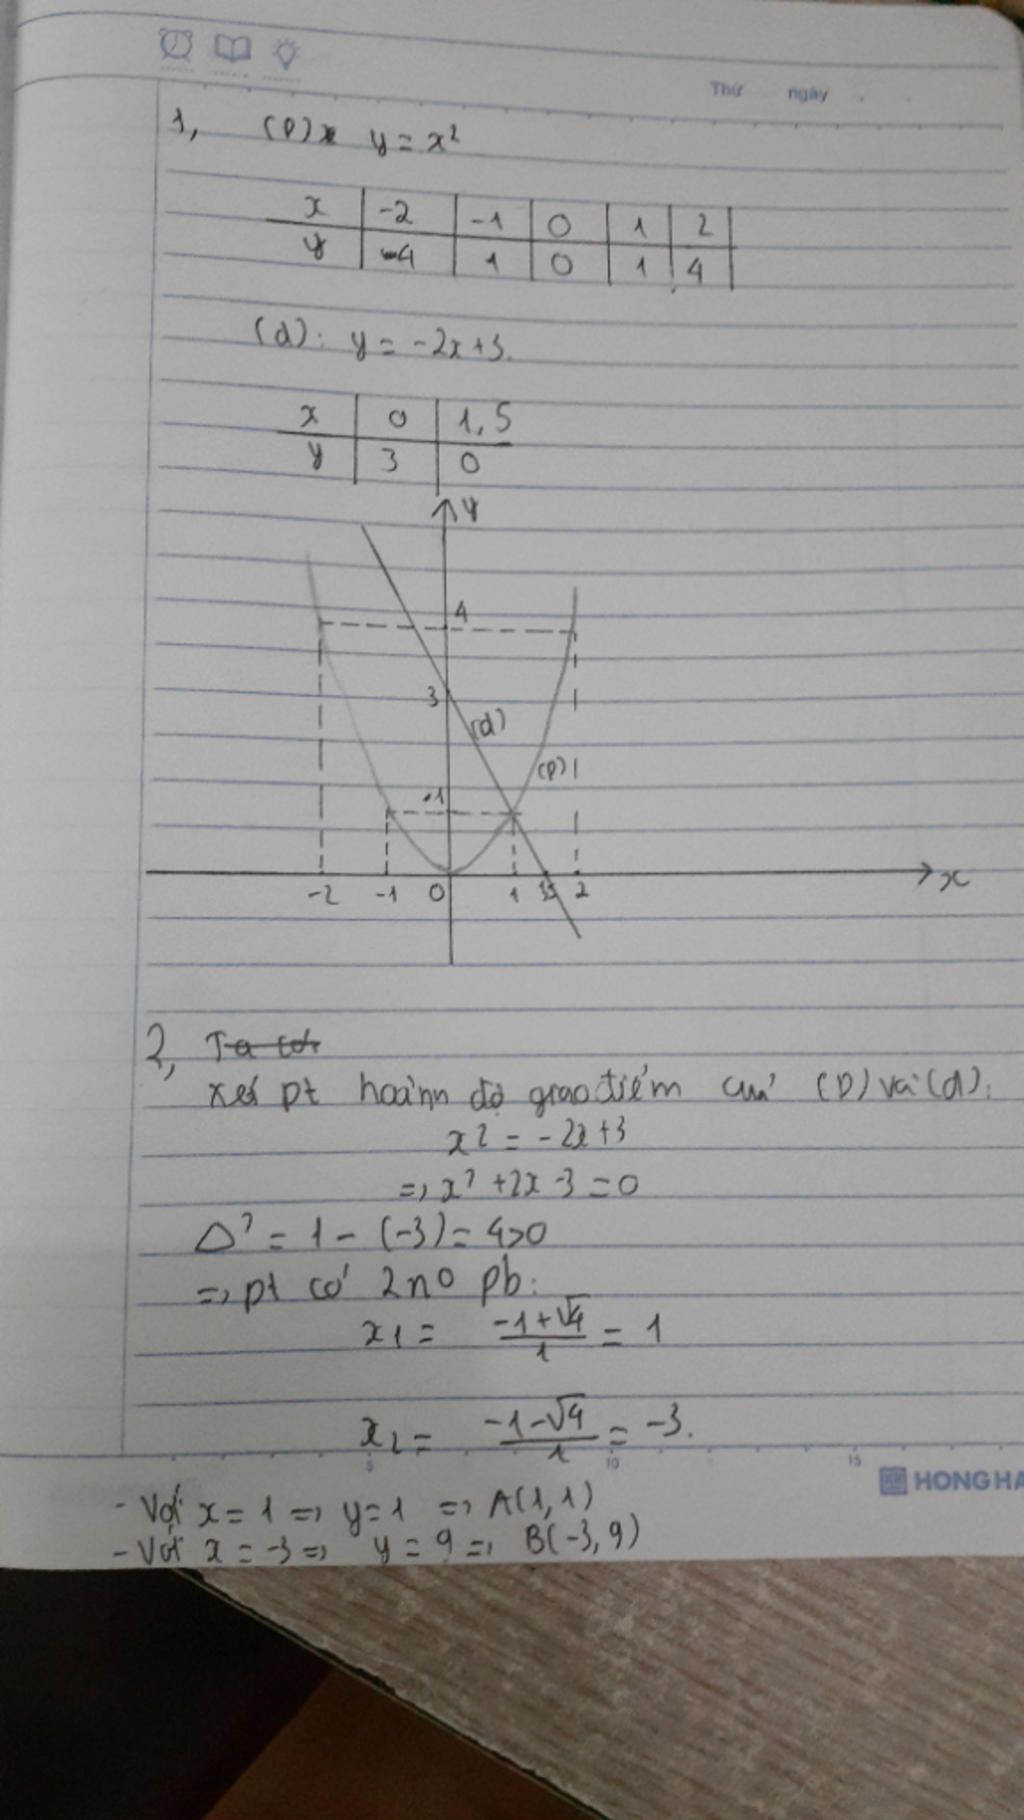 Thứ ngày
1, (P) y = x²
x -2 -1 0 1 2
y -4 1 0 1 4
(d): y = -2x+3.
x 0 1,5
y 3 0
y
4
3
(d)
(P)
1
-2 -1 0 1 1,5 2 x
2, Ta có
xét pt hoành độ giao điểm của (P) và (d):
x² = -2x+3
=> x² +2x-3=0
Δ' = 1 - (-3) = 4>0
=> pt có 2n0 pb:
x1 = -1+√4 / 1 = 1
x2 = -1-√4 / 1 = -3.
5 10 15
HONG HA
- Với x = 1 => y=1 => A(1,1)
- Với x = -3 => y = 9 => B(-3,9)